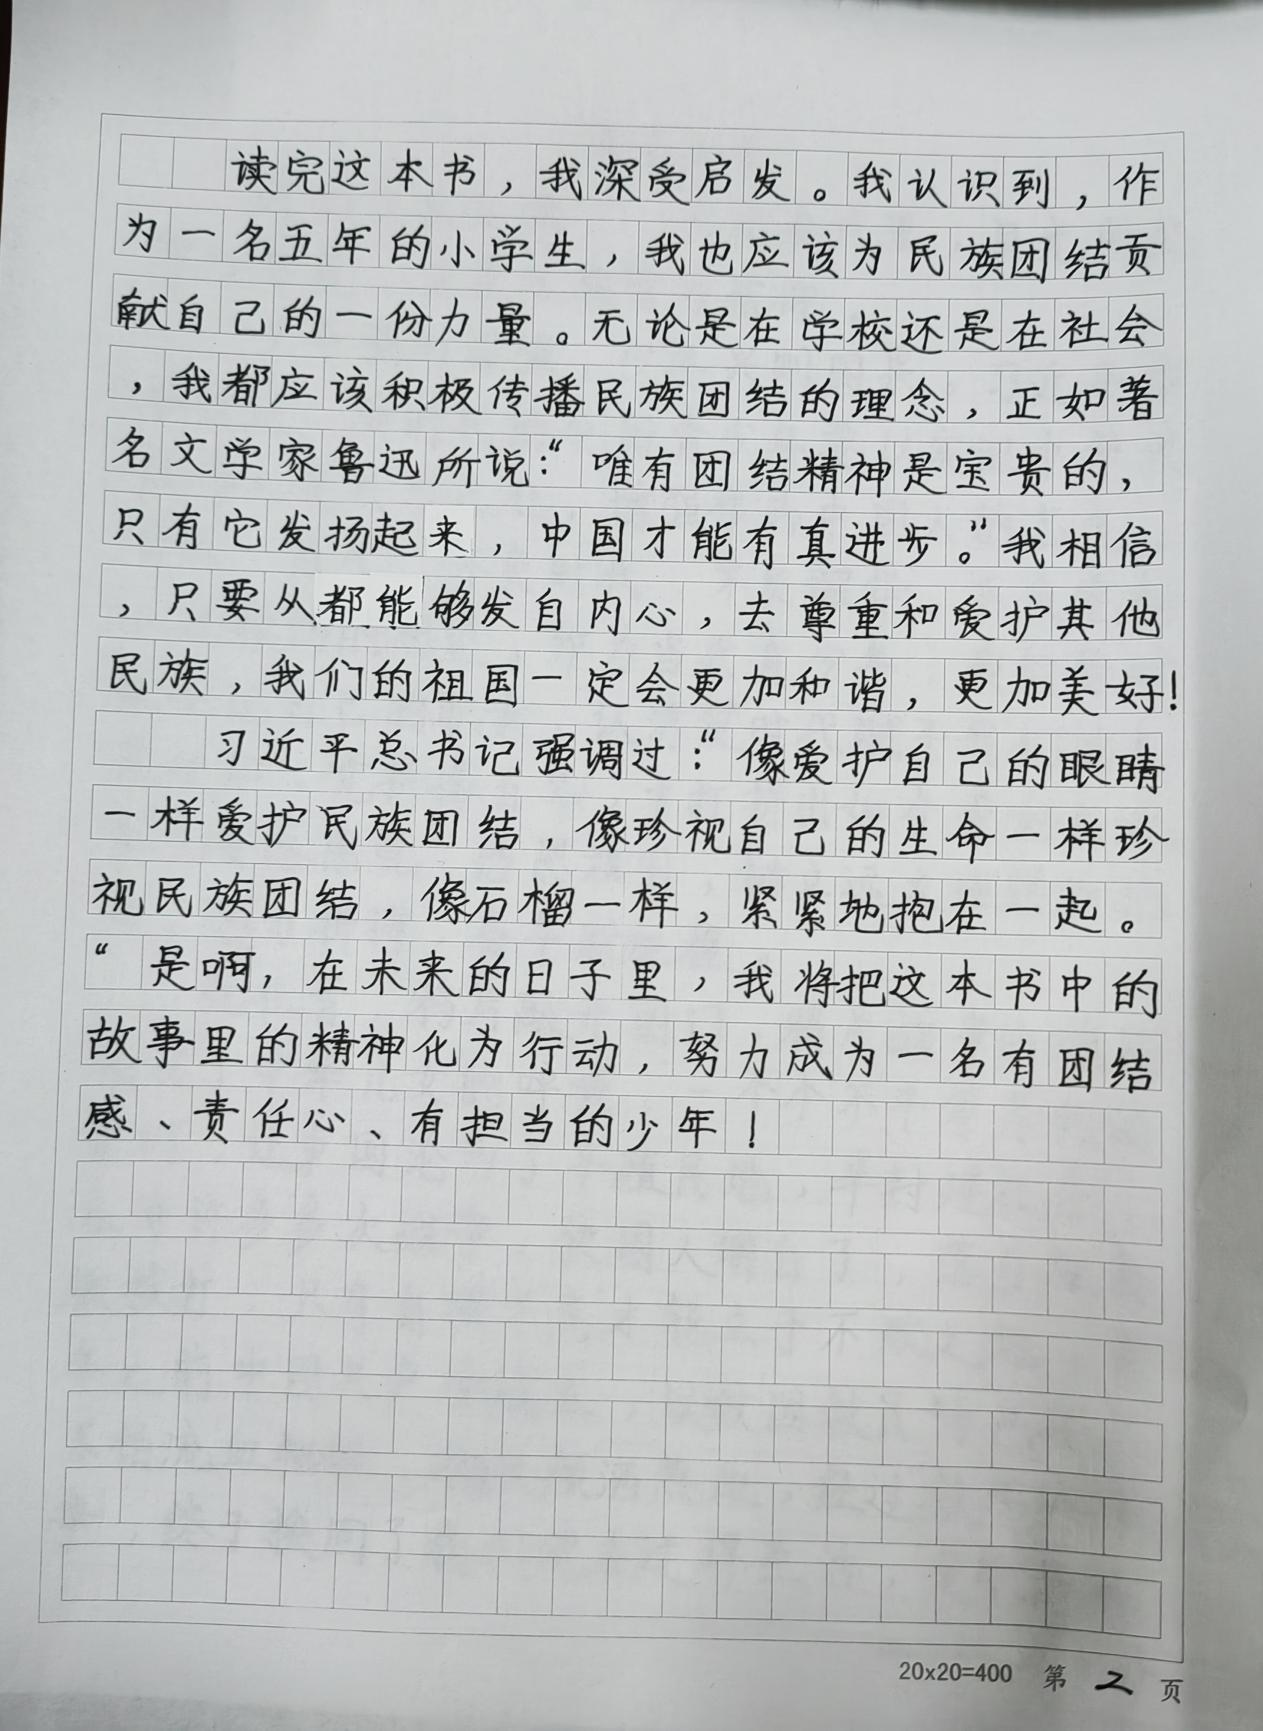 读完这本书，我深受启发。我认识到，作
为一名五年的小学生，我也应该为民族团结贡
献自己的一份力量。无论是在学校还是在社会
，我都应该积极传播民族团结的理念，正如著
名文学家鲁迅所说：“唯有团结精神是宝贵的，
只有它发扬起来，中国才能有真进步。”我相信
，只要从都能够发自内心，去尊重和爱护其他
民族，我们的祖国一定会更加和谐，更加美好！
习近平总书记强调过：“像爱护自己的眼睛
一样爱护民族团结，像珍视自己的生命一样珍
视民族团结，像石榴一样，紧紧地抱在一起。
“是啊，在未来的日子里，我将把这本书中的
故事里的精神化为行动，努力成为一名有团结
感、责任心、有担当的少年！
20x20=400 第 2 页